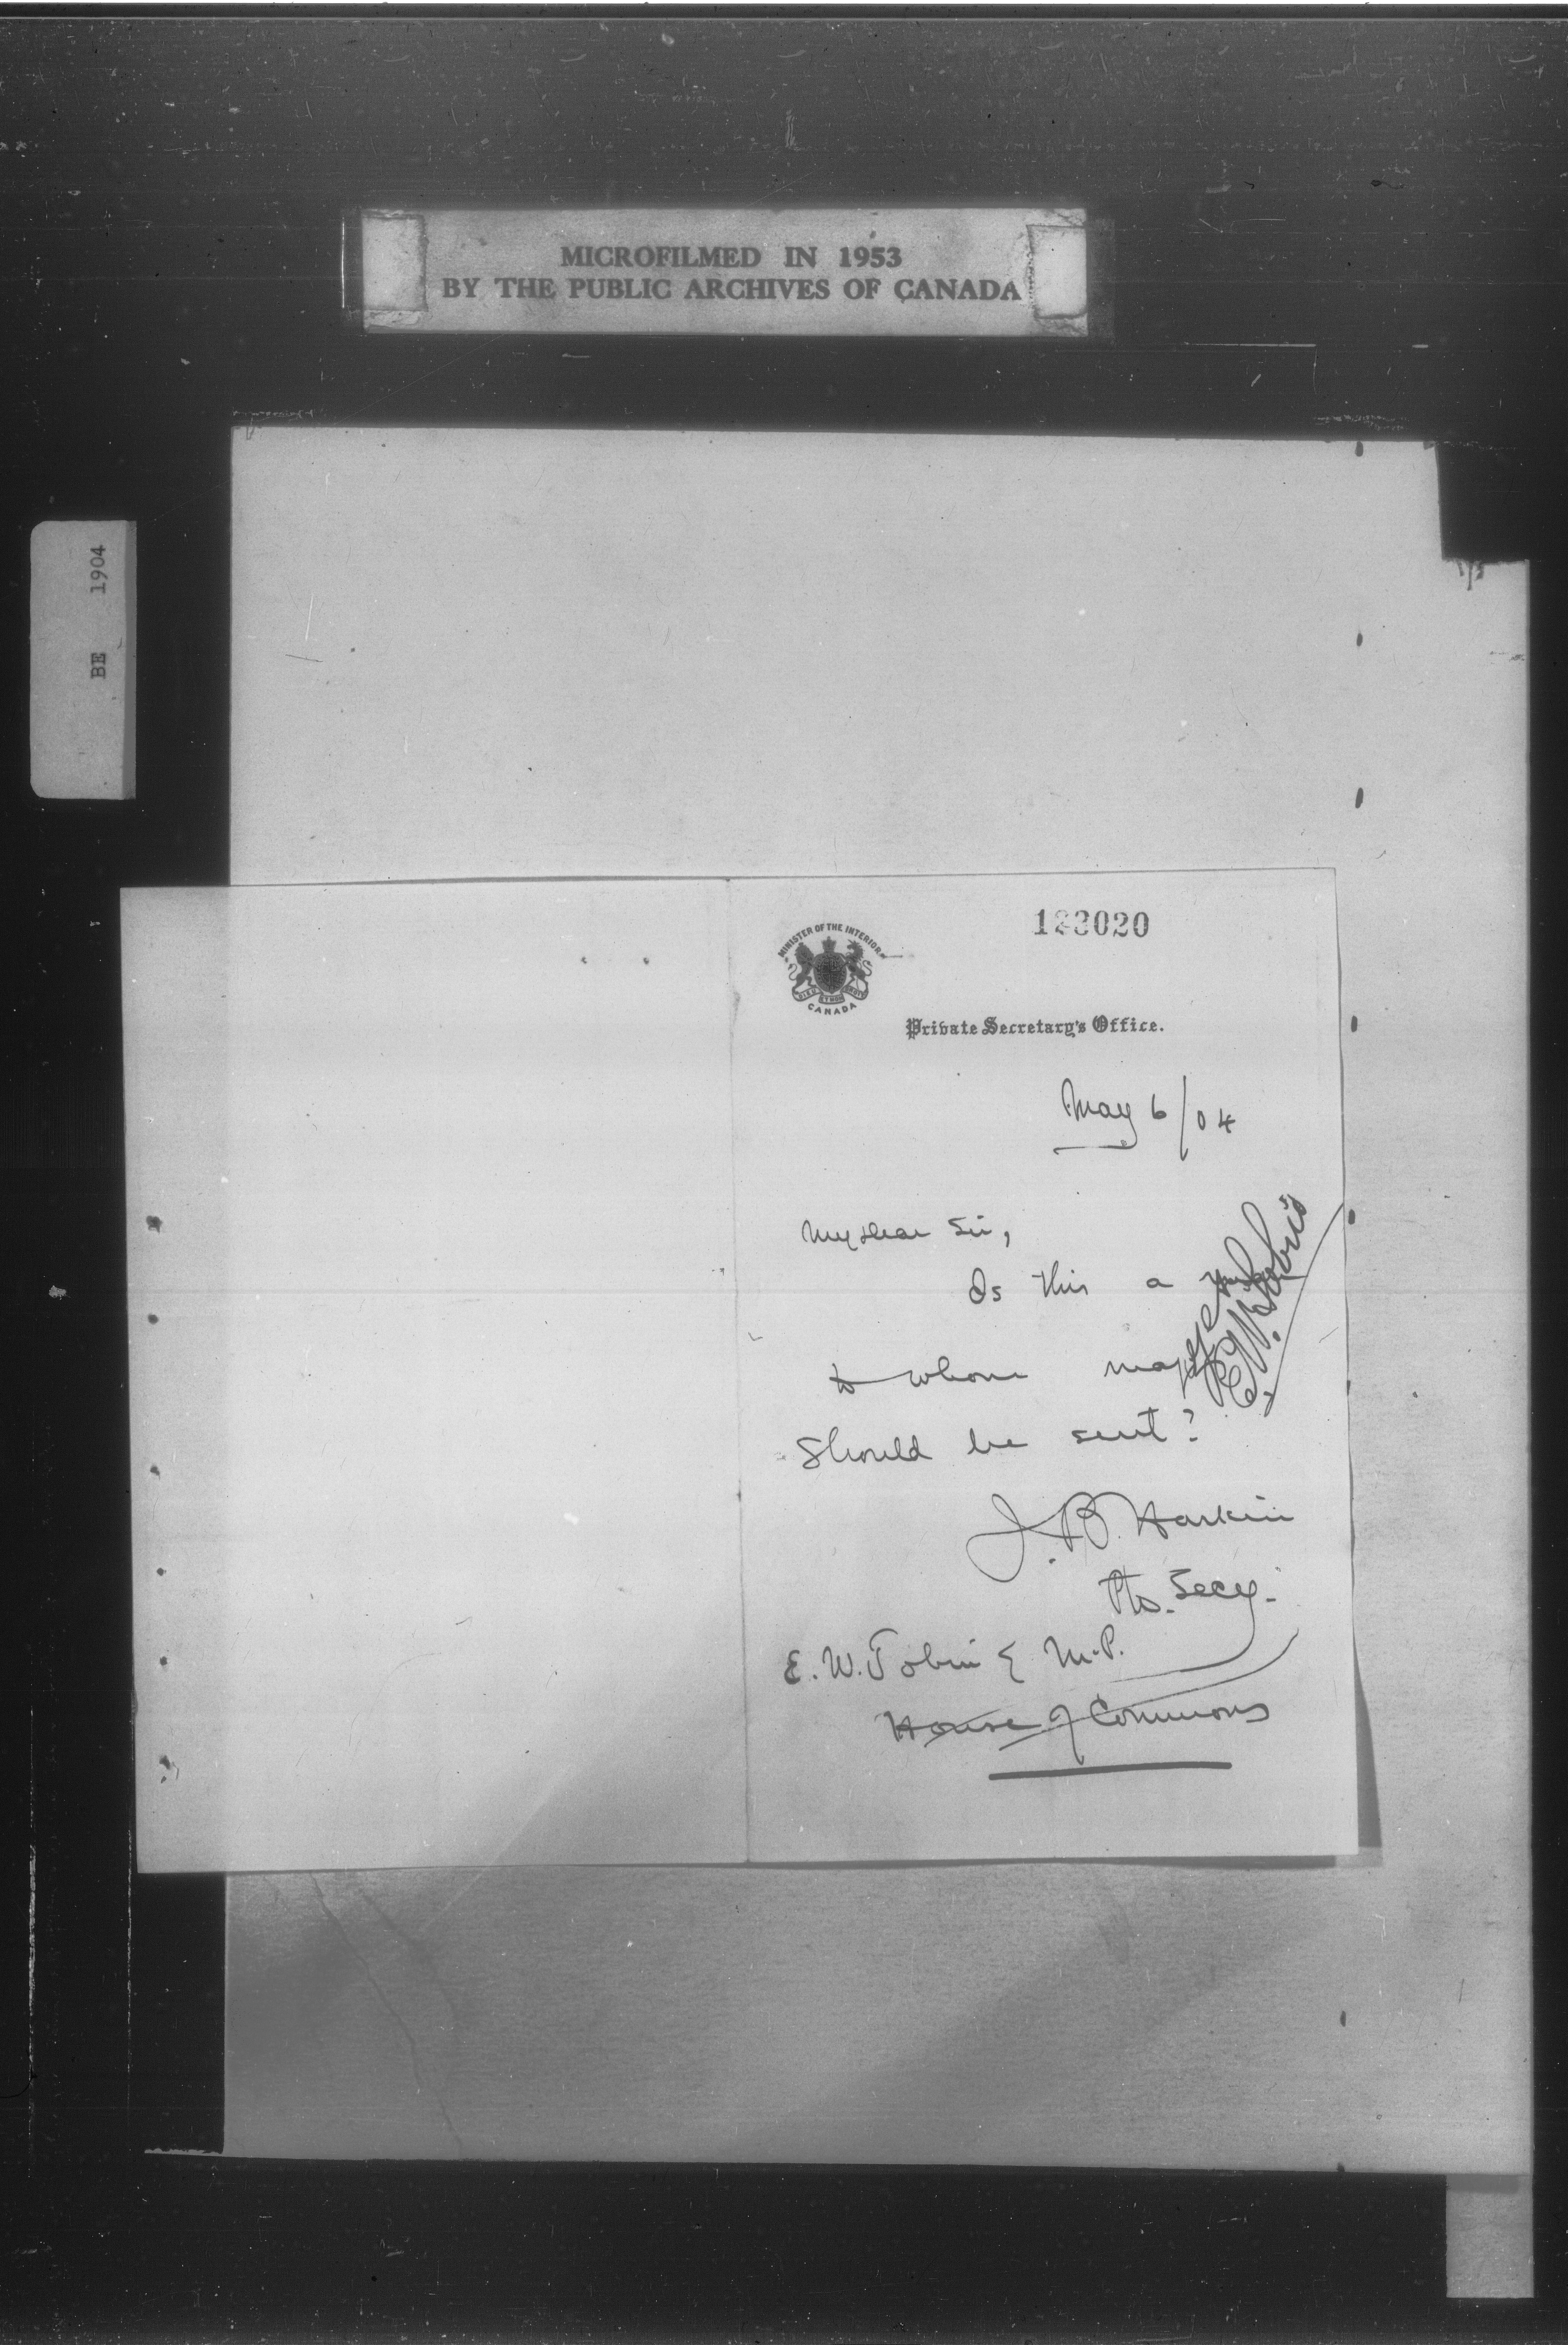 MICROFILMED IN 1953
BY THE PUBLIC ARCHIVES OF CANADA
BE 1904
123020
MINISTER OF THE INTERIOR
CANADA
Private Secretary's Office.
May 6/04
My dear Sir,
Is this a
to whom
should be sent?
J.B. Harkin
Pte. Secy.
E. W. Tobin M.P.
House of Commons
E.W. Tobin